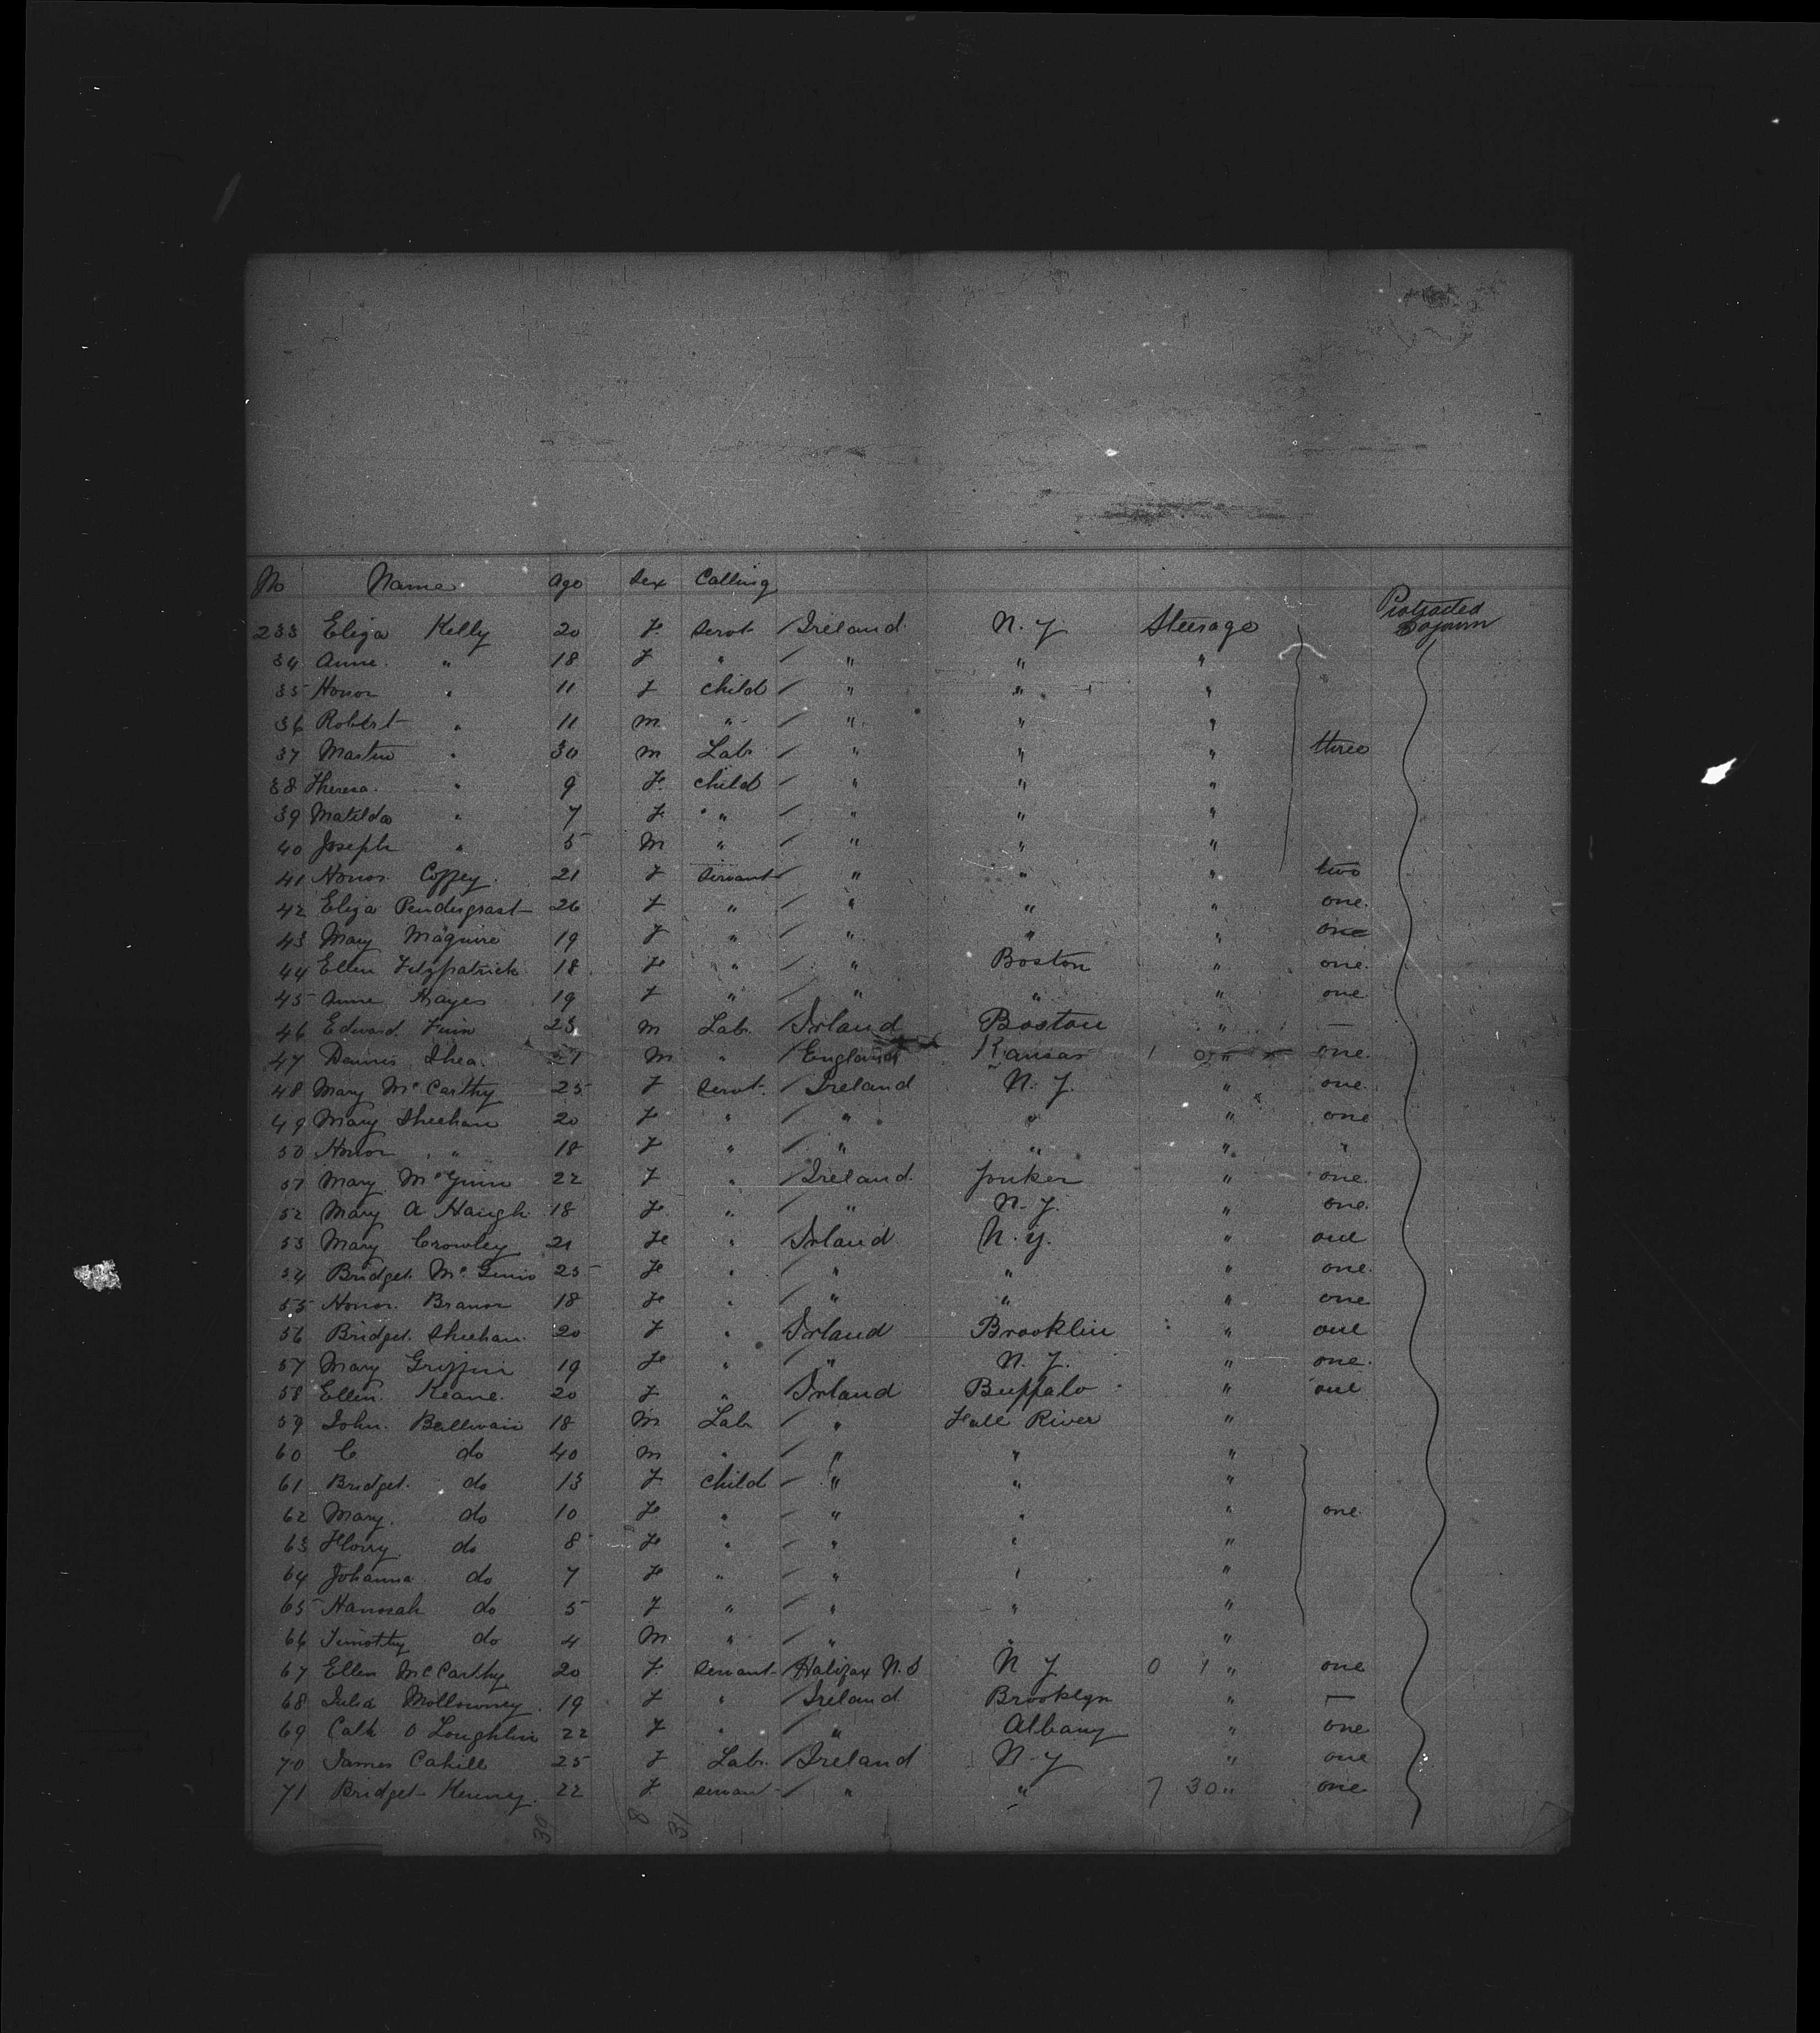 No Name Age Sex Calling
233 Eliza Kelly 20 F. Servt. Ireland N. Y Steerage Protracted Sojourn
34 Anne. " 18 F " / " " "
35 Honor " 11 F child / " " "
36 Robert " 11 m " / " " "
37 Martin " 30 m Lab. / " " " three
38 Theresa. " 9 F. child / " " "
39 Matilda " 7 F. " / " " "
40 Joseph " 5 M " / " " "
41 Honor Coffey. 21 F servant / " " " two
42 Eliza Pendergrast 26 F " / " " " one.
43 Mary Maguire 19 F " / " " " one
44 Ellen Fitzpatrick 18 F " / " Boston " one.
45 Anne Hayes 19 F " / " " " one
46 Edward 23 m Lab. / Irland Boston " —
47 Dennis Shea. 27 M " / England Kansas 1 0 " one.
48 Mary McCarthy 25 F Servt. / Ireland N. Y. " one
49 Mary Sheehan 20 F " / " " " one
50 Honor " 18 F " / " " " "
51 Mary 22 F " / Ireland. Yonker " one.
52 Mary A Haugh 18 F. " / " N. Y. " one.
53 Mary Crowley 21 F " / Irland N. Y. " one
54 Bridget. 25 F " / " " " one.
55 Honor. 18 F " / " " " one
56 Bridget. Sheehan. 20 F " Irland Brooklin " one
57 Mary Griffin 19 F " / " N. Y. " one.
58 Ellen. Keane. 20 F " Irland Buffalo " one
59 John. 18 M Lab. / " Fall River "
60 C do 40 m " / " " "
61 Bridget. do 13 F child / " " "
62 Mary. do 10 F " / " " " one
63 do 8 F " / " " "
64 Johanna do 7 F " / " " "
65 Hannah do 5 F " / " " "
66 Timothy do 4 M " / " " "
67 Ellen McCarthy 20 F. servant Halifax N. S N Y 0 1 " one
68 Julia Mollowney. 19 F " / Ireland Brooklyn " —
69 Cath O Loughlin 22 F " / " Albany " one
70 James Cahill 25 F Lab. / Ireland N. Y " one
71 Bridget Kenney. 22 F servant / " " 7 30 " one
30 8 31